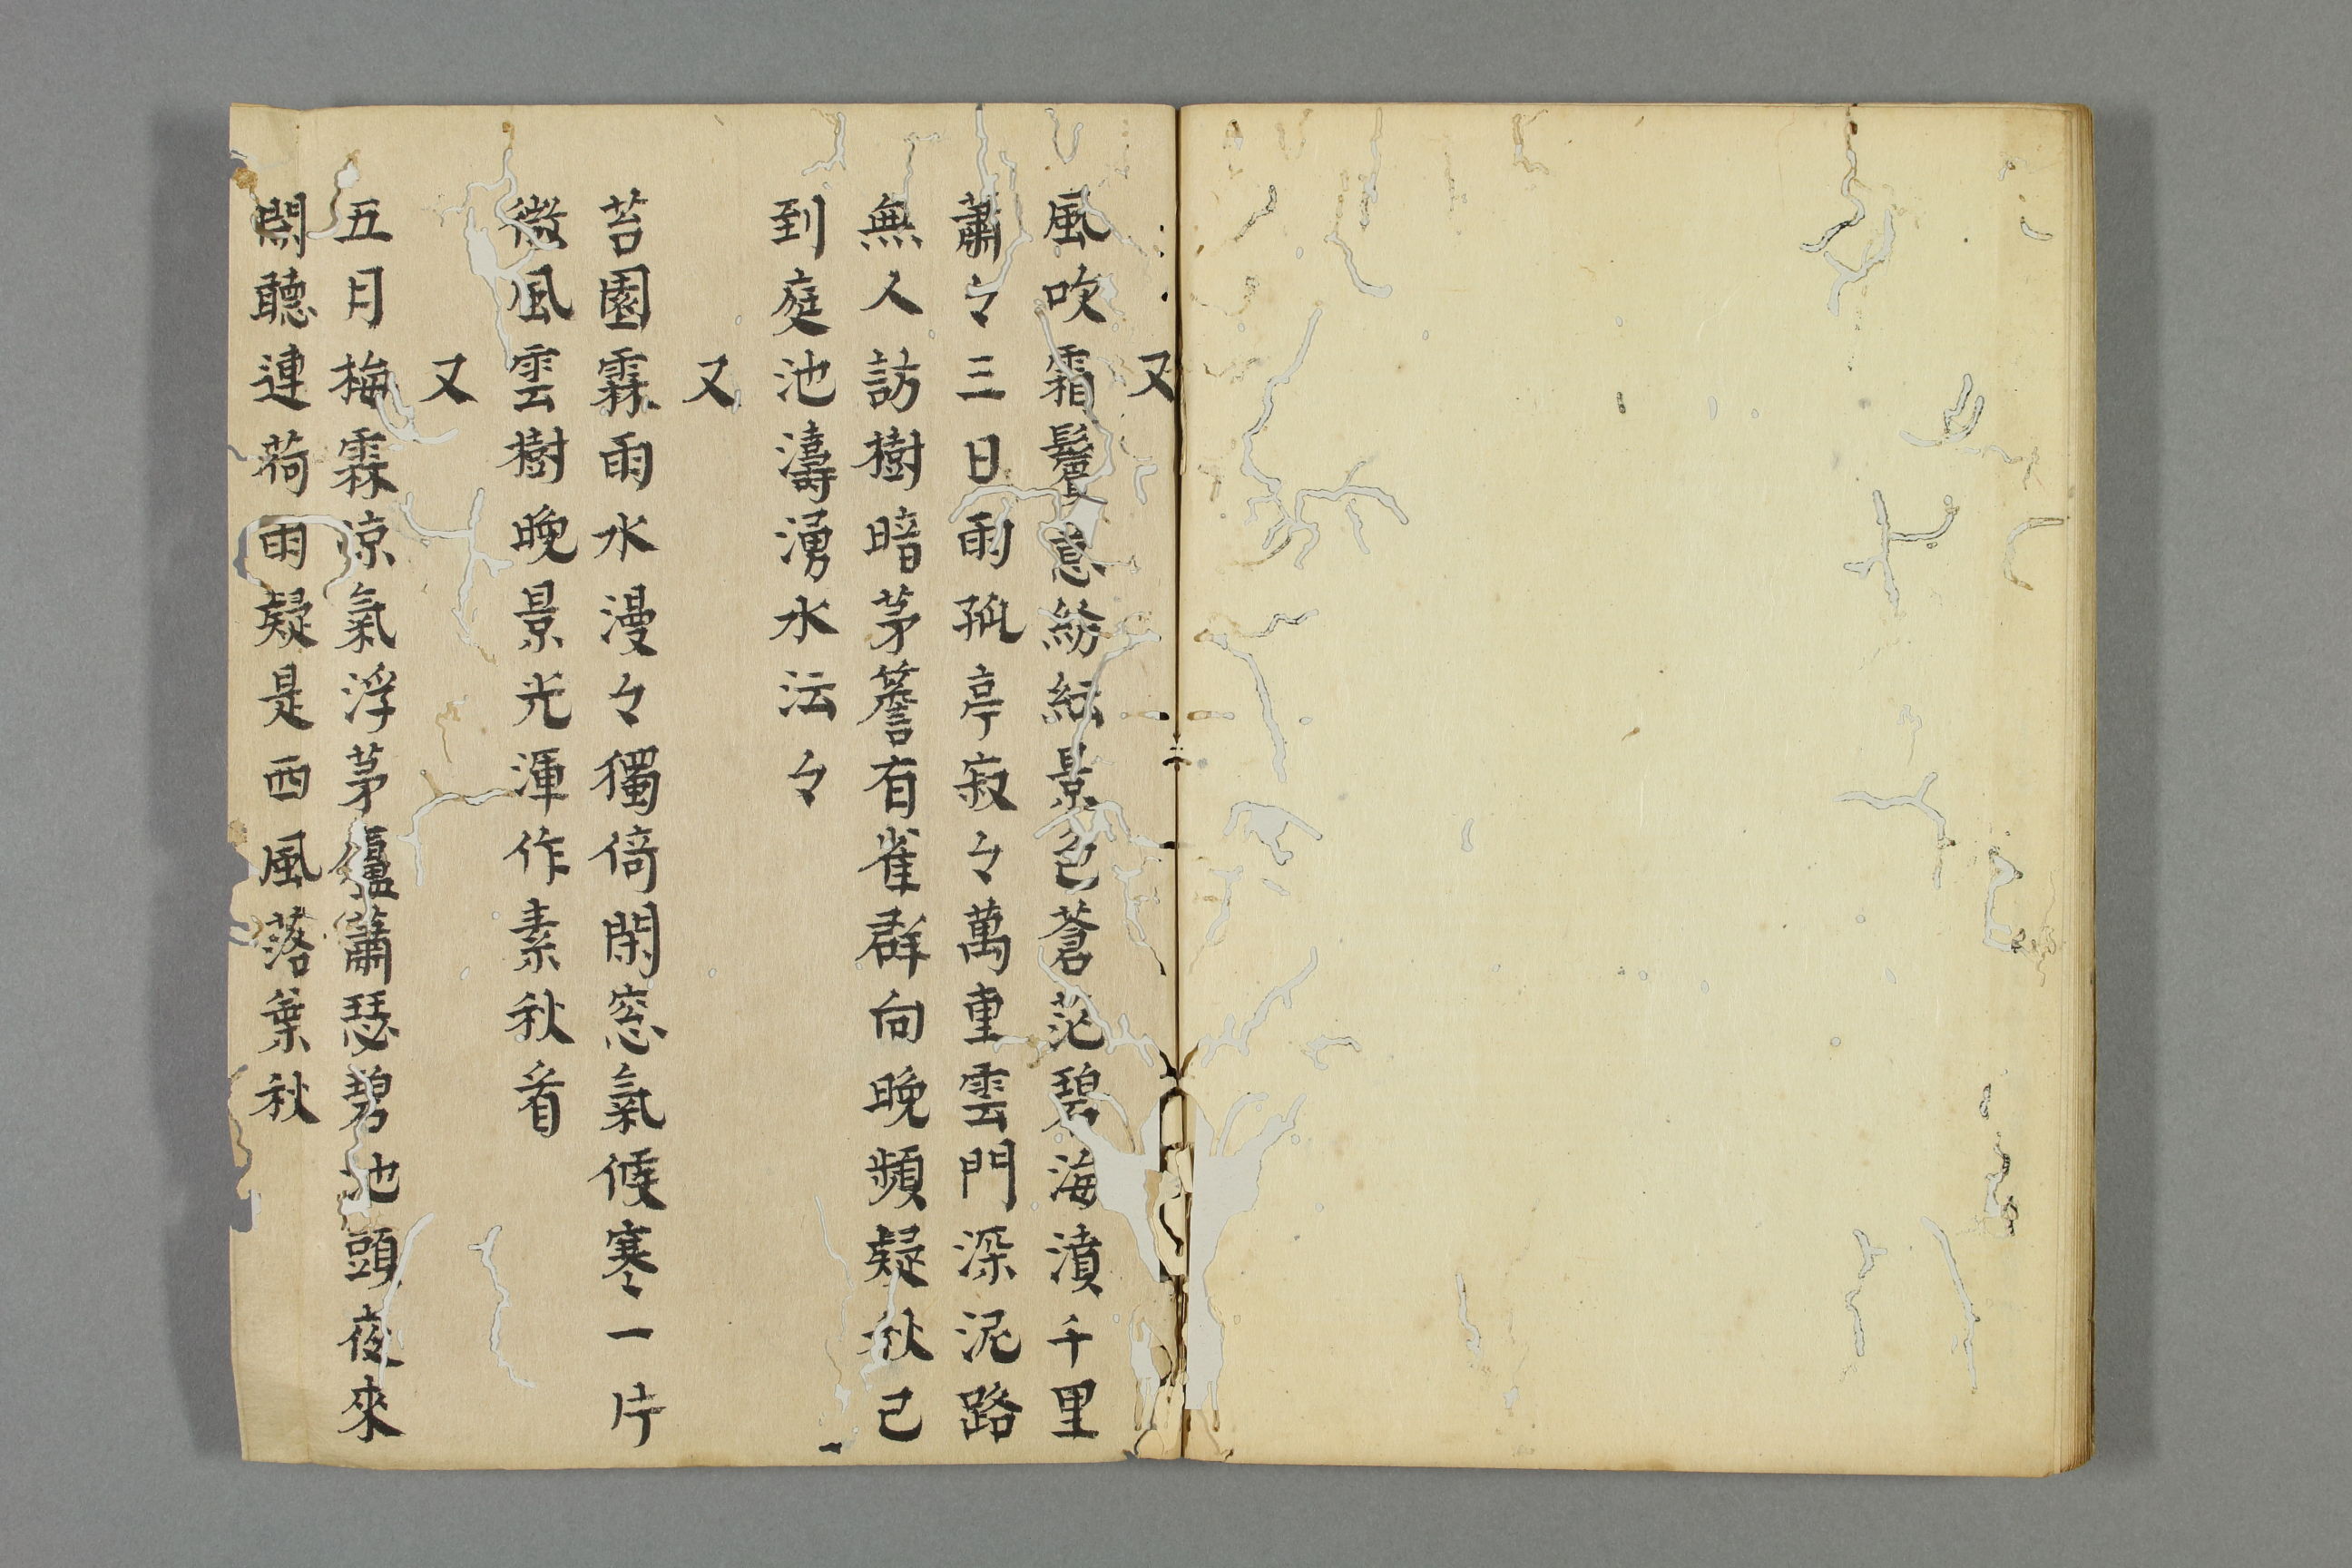 又
風吹霜鬢意紛紜景色蒼茫碧海濆千里
蕭々三日雨孤亭寂々萬重雲門深泥路
無人訪樹暗茅簷有雀群向晚頻疑秋已
到庭池濤湧水沄々
又
苔園霖雨水漫々獨倚閑窓氣候寒一片
微風雲樹晚景光渾作素秋看
又
五月梅霖凉氣浮茅廬蕭瑟碧池頭夜來
閑聽連荷雨疑是西風落葉秋